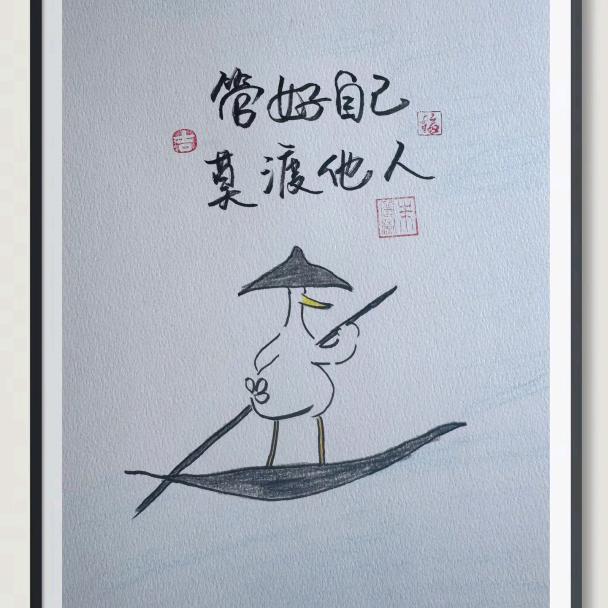 管好自己
莫渡他人
吉
福